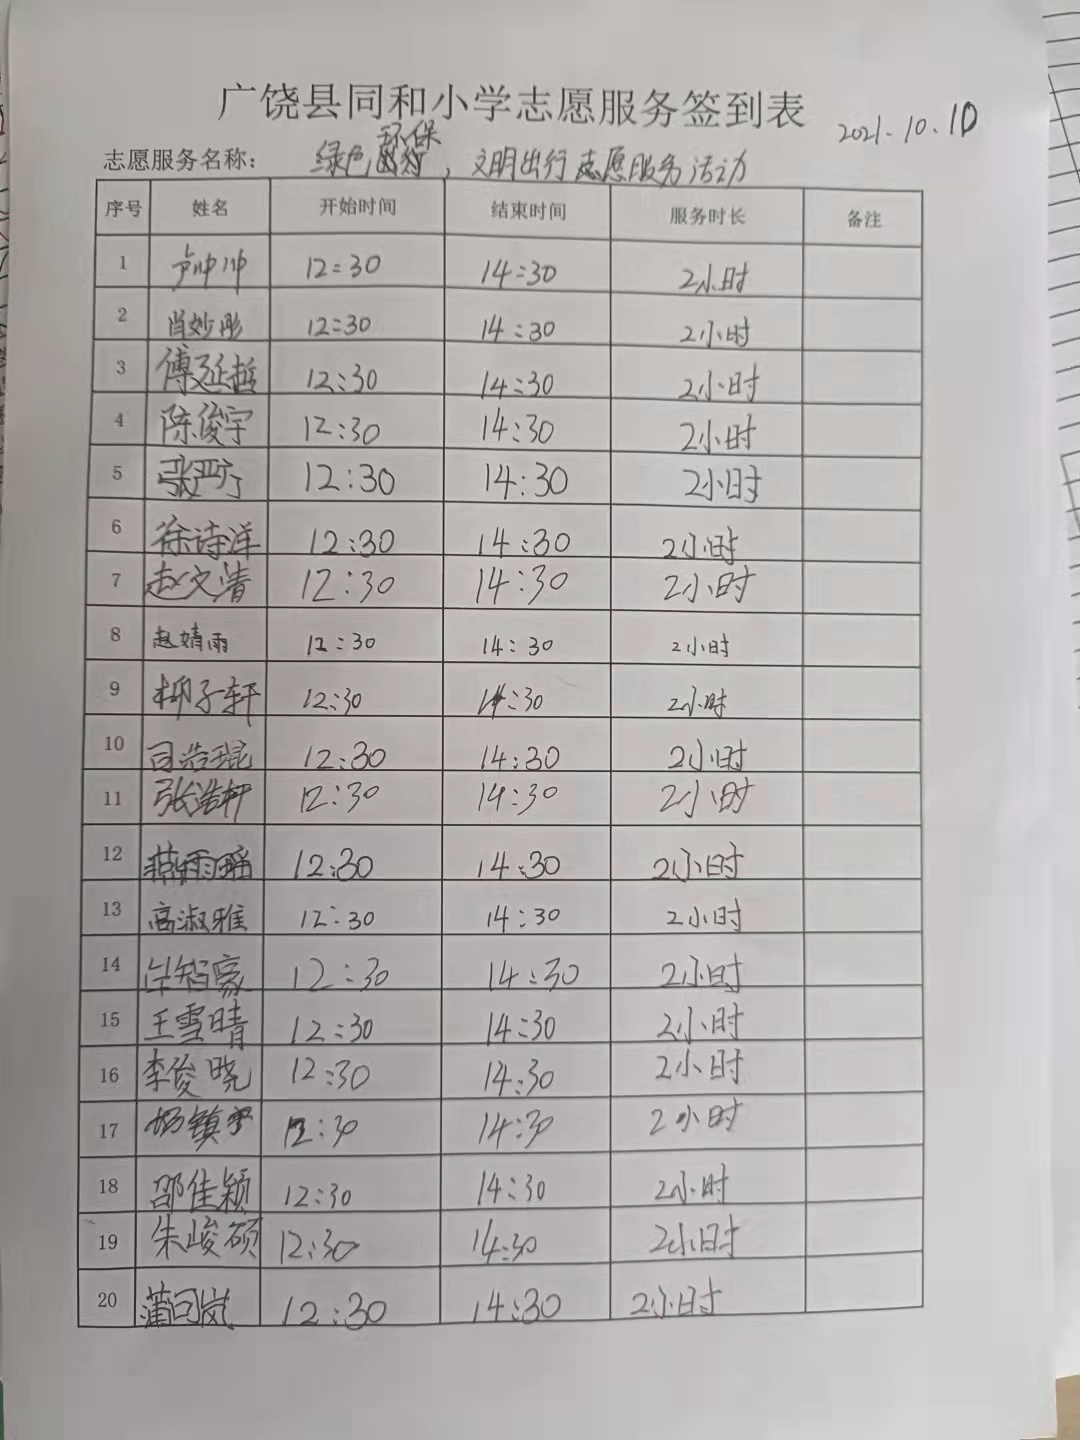 广饶县同和小学志愿服务签到表
2021.10.10
环保
志愿服务名称： 绿色，文明出行志愿服务活动
序号 姓名 开始时间 结束时间 服务时长 备注
1 12:30 14:30 2小时
2 肖妙彤 12:30 14:30 2小时
3 傅延哲 12:30 14:30 2小时
4 陈俊宇 12:30 14:30 2小时
5 12:30 14:30 2小时
6 徐诗洋 12:30 14:30 2小时
7 赵文清 12:30 14:30 2小时
8 赵婧雨 12:30 14:30 2小时
9 柳子轩 12:30 14:30 2小时
10 司浩琨 12:30 14:30 2小时
11 张浩轩 12:30 14:30 2小时
12 12:30 14:30 2小时
13 高淑雅 12:30 14:30 2小时
14 12:30 14:30 2小时
15 王雪晴 12:30 14:30 2小时
16 李俊晓 12:30 14:30 2小时
17 12:30 14:30 2小时
18 邵佳颖 12:30 14:30 2小时
19 朱峻硕 12:30 14:30 2小时
20 蒲司岚 12:30 14:30 2小时